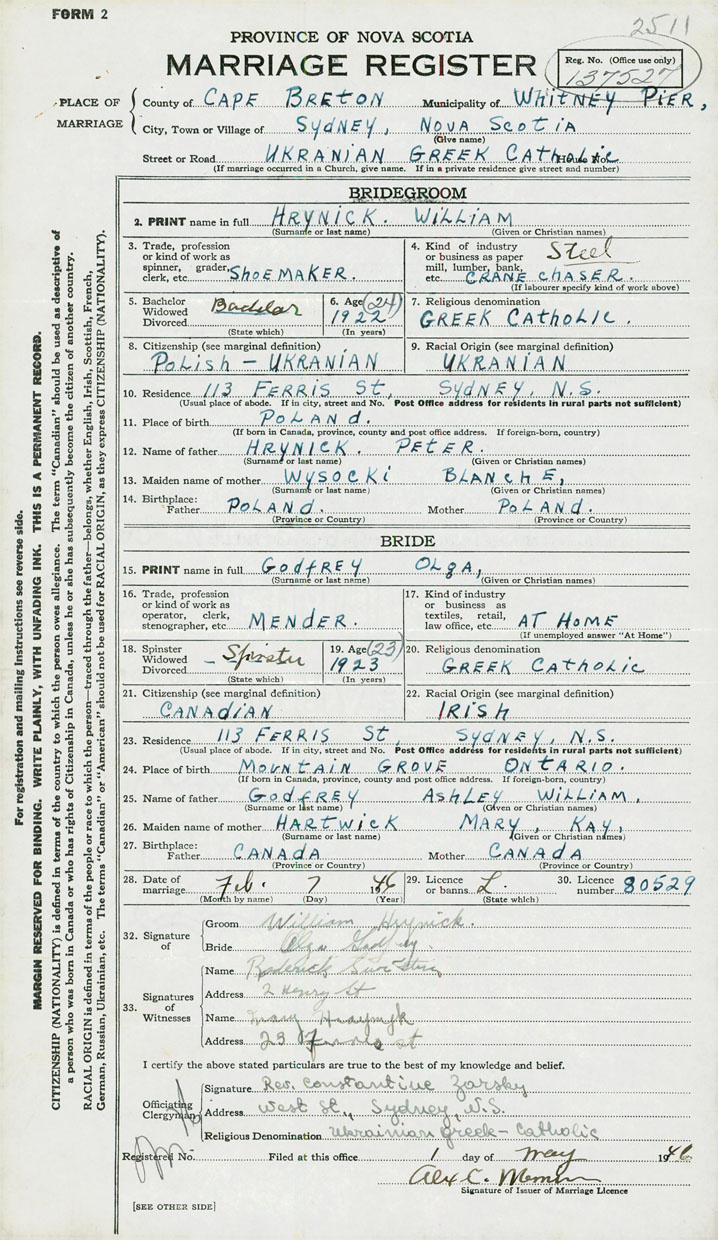 FORM 2
2511
PROVINCE OF NOVA SCOTIA
MARRIAGE REGISTER
Reg. No. (Office use only)
137527
PLACE OF MARRIAGE
County of CAPE BRETON Municipality of WHITNEY PIER,
City, Town or Village of SYDNEY, NOVA SCOTIA
(Give name)
Street or Road UKRANIAN GREEK CATHOLIC House No.
(If marriage occurred in a Church, give name. If in a private residence give street and number)
BRIDEGROOM
2. PRINT name in full HRYNICK. WILLIAM
(Surname or last name) (Given or Christian names)
3. Trade, profession or kind of work as spinner, grader, clerk, etc. SHOEMAKER.
4. Kind of industry or business as paper mill, lumber, bank, etc. Steel CRANE CHASER.
(If labourer specify kind of work above)
5. Bachelor Widowed Divorced Bachelor
(State which)
6. Age (24) 1922
(In years)
7. Religious denomination
GREEK CATHOLIC.
8. Citizenship (see marginal definition)
POLISH - UKRANIAN
9. Racial Origin (see marginal definition)
UKRANIAN
10. Residence 113 FERRIS St, SYDNEY, N.S.
(Usual place of abode. If in city, street and No. Post Office address for residents in rural parts not sufficient)
11. Place of birth POLAND.
(If born in Canada, province, county and post office address. If foreign-born, country)
12. Name of father HRYNICK. PETER.
(Surname or last name) (Given or Christian names)
13. Maiden name of mother WYSOCKI BLANCHE,
(Surname or last name) (Given or Christian names)
14. Birthplace:
Father POLAND. Mother POLAND.
(Province or Country) (Province or Country)
BRIDE
15. PRINT name in full GODFREY OLGA,
(Surname or last name) (Given or Christian names)
16. Trade, profession or kind of work as operator, clerk, stenographer, etc MENDER.
17. Kind of industry or business as textiles, retail, law office, etc. AT HOME
(If unemployed answer "At Home")
18. Spinster Widowed Divorced - Spinster
(State which)
19. Age (23) 1923
(In years)
20. Religious denomination
GREEK CATHOLIC
21. Citizenship (see marginal definition)
CANADIAN
22. Racial Origin (see marginal definition)
IRISH
23. Residence 113 FERRIS St, SYDNEY, N.S.
(Usual place of abode. If in city, street and No. Post Office address for residents in rural parts not sufficient)
24. Place of birth MOUNTAIN GROVE ONTARIO.
(If born in Canada, province, county and post office address. If foreign-born, country)
25. Name of father GODFREY ASHLEY WILLIAM,
(Surname or last name) (Given or Christian names)
26. Maiden name of mother HARTWICK MARY, KAY,
(Surname or last name) (Given or Christian names)
27. Birthplace:
Father CANADA Mother CANADA
(Province or Country) (Province or Country)
28. Date of marriage Feb. 7 1946
(Month by name) (Day) (Year)
29. Licence or banns L.
(State which)
30. Licence number 80529
32. Signature of
Groom William Hrynick.
Bride Olga Godfrey.
33. Signatures of Witnesses
Name Roderick
Address 2 Henry St
Name
Address 23 st
I certify the above stated particulars are true to the best of my knowledge and belief.
Officiating Clergyman
Signature Rev. Constantine Zarsky
Address West St., Sydney, N.S.
Religious Denomination Ukrainian Greek-Catholic
Registered No. Filed at this office 1 day of May 1946
Alex C.
Signature of Issuer of Marriage Licence
[SEE OTHER SIDE]
For registration and mailing instructions see reverse side.
MARGIN RESERVED FOR BINDING. WRITE PLAINLY, WITH UNFADING INK. THIS IS A PERMANENT RECORD.
CITIZENSHIP (NATIONALITY) is defined in terms of the country to which the person owes allegiance. The term "Canadian" should be used as descriptive of
a person who was born in Canada or who has rights of Citizenship in Canada, unless he or she has subsequently become the citizen of another country.
RACIAL ORIGIN is defined in terms of the people or race to which the person—traced through the father—belongs, whether English, Irish, Scottish, French,
German, Russian, Ukrainian, etc. The terms "Canadian" or "American" should not be used for RACIAL ORIGIN, as they express CITIZENSHIP (NATIONALITY).